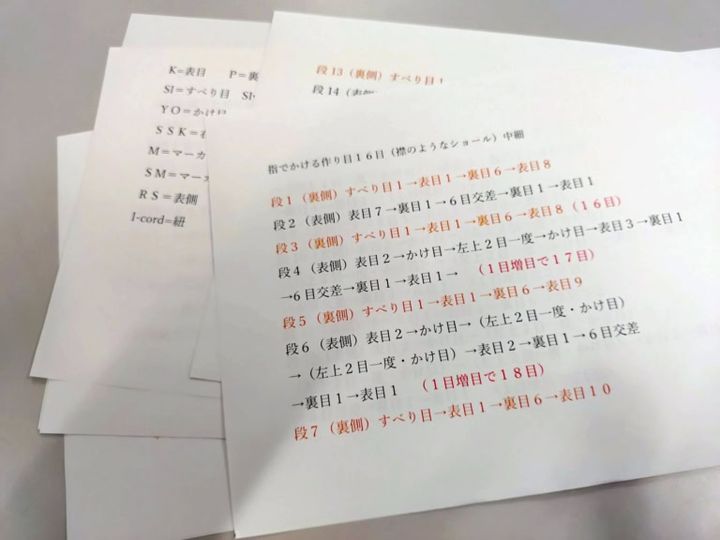 K=表目　P=裏
Sl=すべり目　Sl
YO=かけ目
SSK=
M=マーカ
SM=マーカ
RS=表側
I-cord=紐
段13（裏側）すべり目1
段14（表側
指でかける作り目16目（襟のようなショール）中細
段1（裏側）すべり目1→表目1→裏目6→表目8
段2（表側）表目7→裏目1→6目交差→裏目1→表目1
段3（裏側）すべり目1→表目1→裏目6→表目8（16目）
段4（表側）表目2→かけ目→左上2目一度→かけ目→表目3→裏目1
→6目交差→裏目1→表目1→　（1目増目で17目）
段5（裏側）すべり目1→表目1→裏目6→表目9
段6（表側）表目2→かけ目→（左上2目一度・かけ目）
→（左上2目一度・かけ目）→表目2→裏目1→6目交差
→裏目1→表目1　（1目増目で18目）
段7（裏側）すべり目→表目1→裏目6→表目10